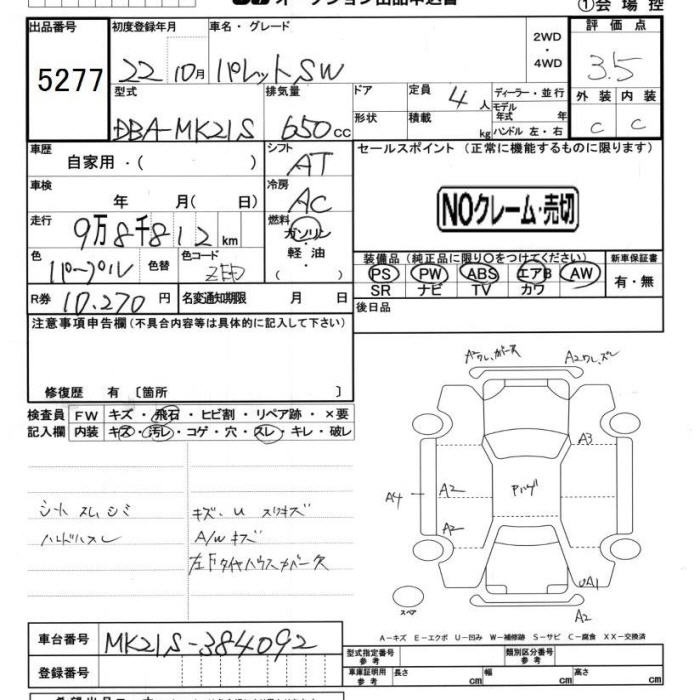 オークション出品申込書
①会場控
出品番号 初度登録年月 車名・グレード 2WD・4WD 評価点
5277 22 10月 パレットSW 3.5
型式 排気量 ドア 定員 4人 ディーラー・並行 外装 内装
DBA-MK21S 650cc 形状 積載 kg モデル年式 年 ハンドル 左・右 C C
車歴 シフト セールスポイント (正常に機能するものに限ります)
自家用・( ) AT
車検 冷房
年 月( 日) AC NOクレーム・売切
走行 燃料
9万8千812km ガソリン・軽油・( )
色 色替 色コード 装備品(純正品に限り○をつけてください) 新車保証書
パープル ZED PS PW ABS エアB AW 有・無
SR ナビ TV カワ
R券 10.270円 名変通知期限 月 日 後日品
注意事項申告欄(不具合内容等は具体的に記入して下さい)
修復歴 有 〔箇所 〕
検査員記入欄 FW キズ・飛石・ヒビ割・リペア跡・×要
内装 キズ・汚レ・コゲ・穴・スレ・キレ・破レ
A2ワレ, A2ワレ,ズレ
A3
A4 A2
A2
UA1
スペア A2
シートスレ, シミ キズ、U スリキズ
ハンドルスレ A/Wキズ
左Fタイヤハウスカバー欠
A-キズ E-エクボ U-凹み W-補修跡 S-サビ C-腐食 XX-交換済
車台番号 MK21S-384092
登録番号
型式指定番号 参考 類別区分番号 参考
車庫証明用 参考 長さ cm 幅 cm 高さ cm